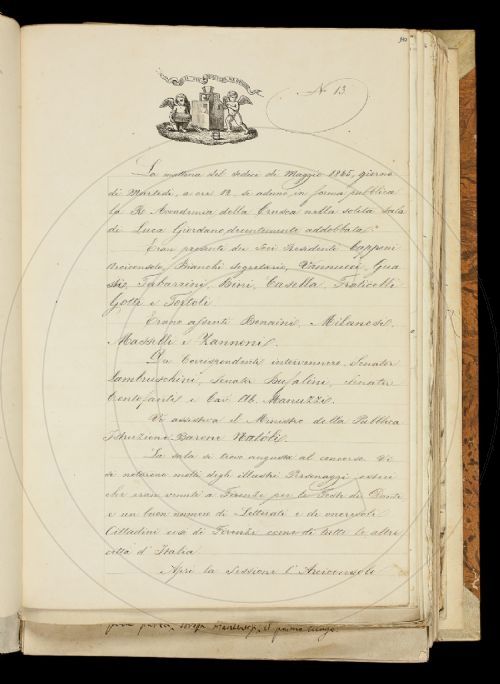 IL PIÙ BEL FIOR NE COGLIE
N. 13.
La mattina del sedici di Maggio 1865, giorno
di Martedì, a ore 12 si adunò in forma pubblica
la R. Accademia della Crusca nella solita Sala
di Luca Giordano, decentemente addobbata.
Eran presenti dei Soci Residenti Capponi
Arciconsolo, Bianchi Segretario, Vannucci, Gua
sti, Tabarrini, Bini, Casella, Fraticelli
Gotti e Tortoli.
Erano assenti Bonaini, Milanesi,
Masselli e Zannoni.
De' Corrispondenti intervennero Senator
Lambruschini, Senator Bufalini, Senator
Centofanti e Cav. Ab. Manuzzi.
Vi assisteva il Ministro della Pubblica
Istruzione Barone Natoli.
La sala si trovò angusta al concorso. Vi
si notarono molti degli illustri Personaggi esteri
che eran venuti a Firenze per le Feste di Dante
e un buon numero di Letterati e di onorevoli
Cittadini sia di Firenze come di tutte le altre
città d'Italia.
Aprì la Sessione l'Arciconsolo
il primo luogo.